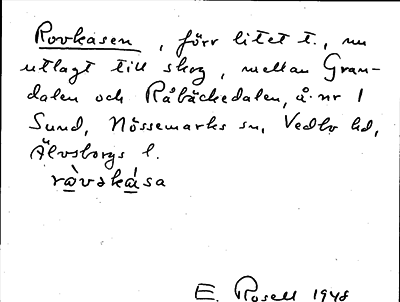 Rovkasen, förr litet t., nu
utlagt till skog, mellan Gran-
dalen och Råbäckedalen, å. nr 1
Sund, Nössemarks sn, Vedbo hd,
Älvsborgs l.
ràvskása
E. Rosell 1948